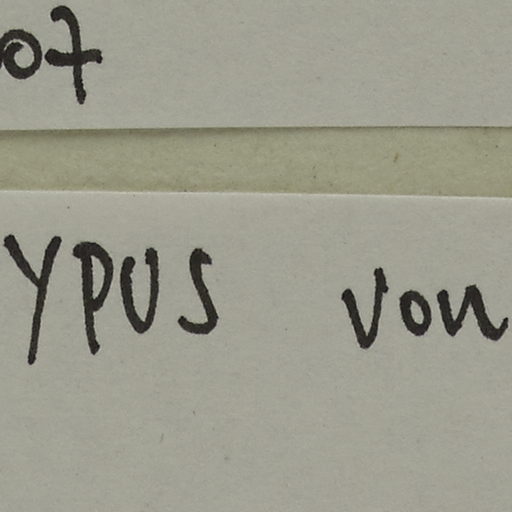 07
YPUS von